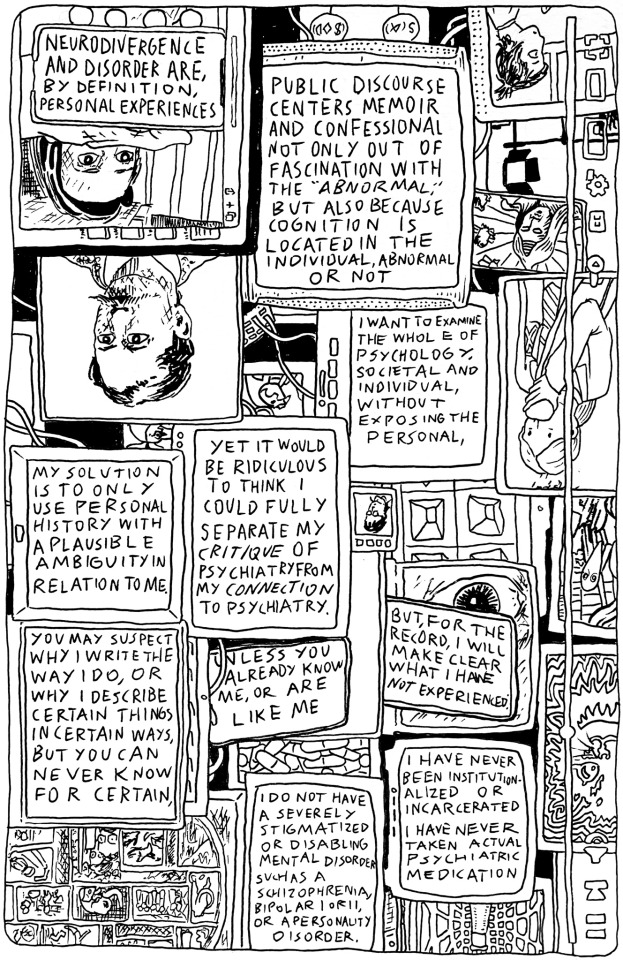 NEURODIVERGENCE
AND DISORDER ARE,
BY DEFINITION,
PERSONAL EXPERIENCES
PUBLIC DISCOURSE
CENTERS MEMOIR
AND CONFESSIONAL
NOT ONLY OUT OF
FASCINATION WITH
THE "ABNORMAL,"
BUT ALSO BECAUSE
COGNITION IS
LOCATED IN THE
INDIVIDUAL, ABNORMAL
OR NOT
I WANT TO EXAMINE
THE WHOLE OF
PSYCHOLOGY,
SOCIETAL AND
INDIVIDUAL,
WITHOUT
EXPOSING THE
PERSONAL,
YET IT WOULD
BE RIDICULOUS
TO THINK I
COULD FULLY
SEPARATE MY
CRITIQUE OF
PSYCHIATRY FROM
MY CONNECTION
TO PSYCHIATRY.
MY SOLUTION
IS TO ONLY
USE PERSONAL
HISTORY WITH
A PLAUSIBLE
AMBIGUITY IN
RELATION TO ME.
YOU MAY SUSPECT
WHY I WRITE THE
WAY I DO, OR
WHY I DESCRIBE
CERTAIN THINGS
IN CERTAIN WAYS,
BUT YOU CAN
NEVER KNOW
FOR CERTAIN,
UNLESS YOU
ALREADY KNOW
ME, OR ARE
LIKE ME
BUT, FOR THE
RECORD, I WILL
MAKE CLEAR
WHAT I HAVE
NOT EXPERIENCED.
I DO NOT HAVE
A SEVERELY
STIGMATIZED
OR DISABLING
MENTAL DISORDER
SUCH AS A
SCHIZOPHRENIA,
BIPOLAR I OR II,
OR A PERSONALITY
DISORDER.
I HAVE NEVER
BEEN INSTITUTION-
ALIZED OR
INCARCERATED
I HAVE NEVER
TAKEN ACTUAL
PSYCHIATRIC
MEDICATION